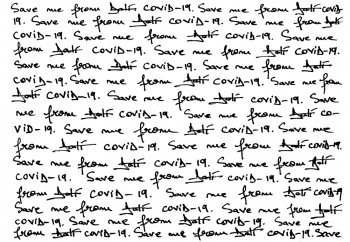 Save me from covid-19. Save me from covid-
19. Save me from covid-19. Save me from
covid-19. Save me from covid-19. Save me
from covid-19. Save me from covid-19.
Save me from covid-19. Save me from
covid-19. Save me from covid-19. Save me from
covid-19. Save me from covid-19. Save
me from covid-19. Save me from co-
vid-19. Save me from covid-19. Save me
from covid-19. Save me from covid-19.
Save me from covid-19. Save me from
covid-19. Save me from covid-19. Save me
from covid-19. Save me from covid-19
Save me from covid-19. Save me from
covid-19. Save me from covid-19. Save me
from covid-19. Save me from covid-19. Save